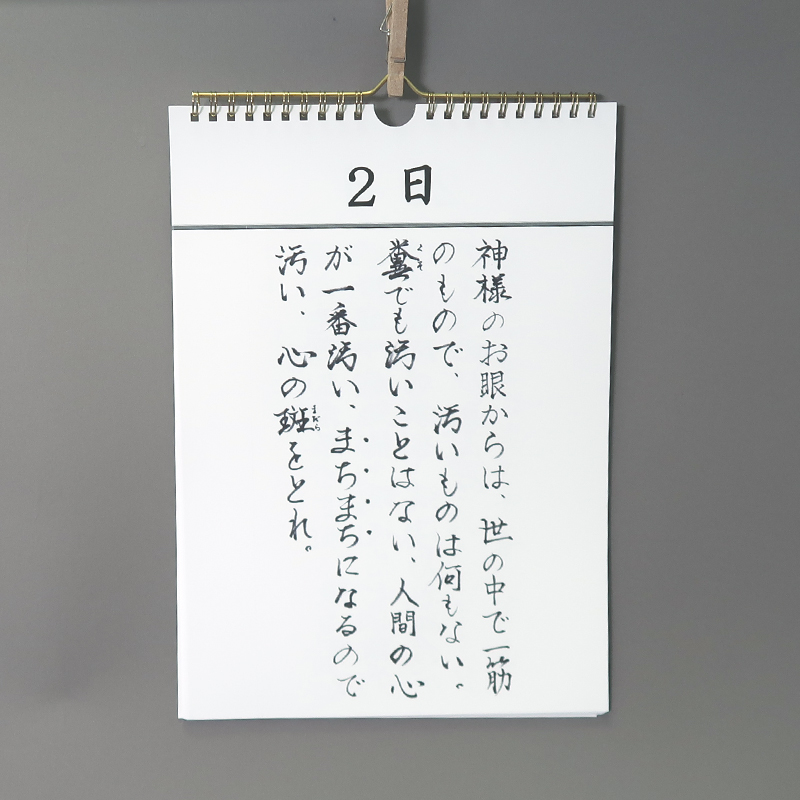 2日
神様のお眼からは、世の中で一筋
のもので、汚いものは何もない。
糞でも汚いことはない、人間の心
くそ
が一番汚い、まちまちになるので
汚い、心の斑をとれ。
まだら